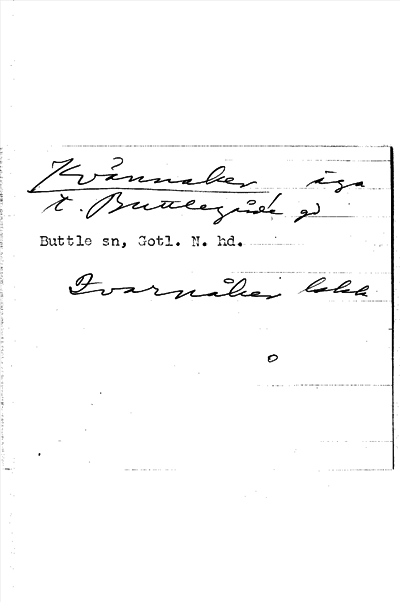 Kvännaker äga
t. Buttlegårde gd
Buttle sn, Gotl. N. hd.
Qvarnåker